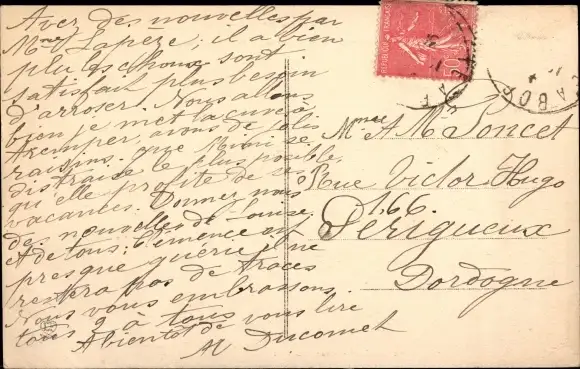 Avez des nouvelles par
Mme Lapeze, il a bien
plu les choux sont
satisfait plus besoin
d'arroser. Nous allons
bien je met la cuve à
tremper, avons de jolis
raisins. que Mimi se
distraise le plus possible,
qu'elle profite de ses
vacances. Donner nous
des nouvelles de Louise
et de tous. Clemence est
presque guérie il ne
restera pas de traces
Nous vous embrassons
tous 2 à tous
A bientôt de vous lire
M Ducomet
REPUBLIQUE FRANCAISE
50c
Mme A M Poncet
Rue Victor Hugo
166.
Périgueux
Dordogne